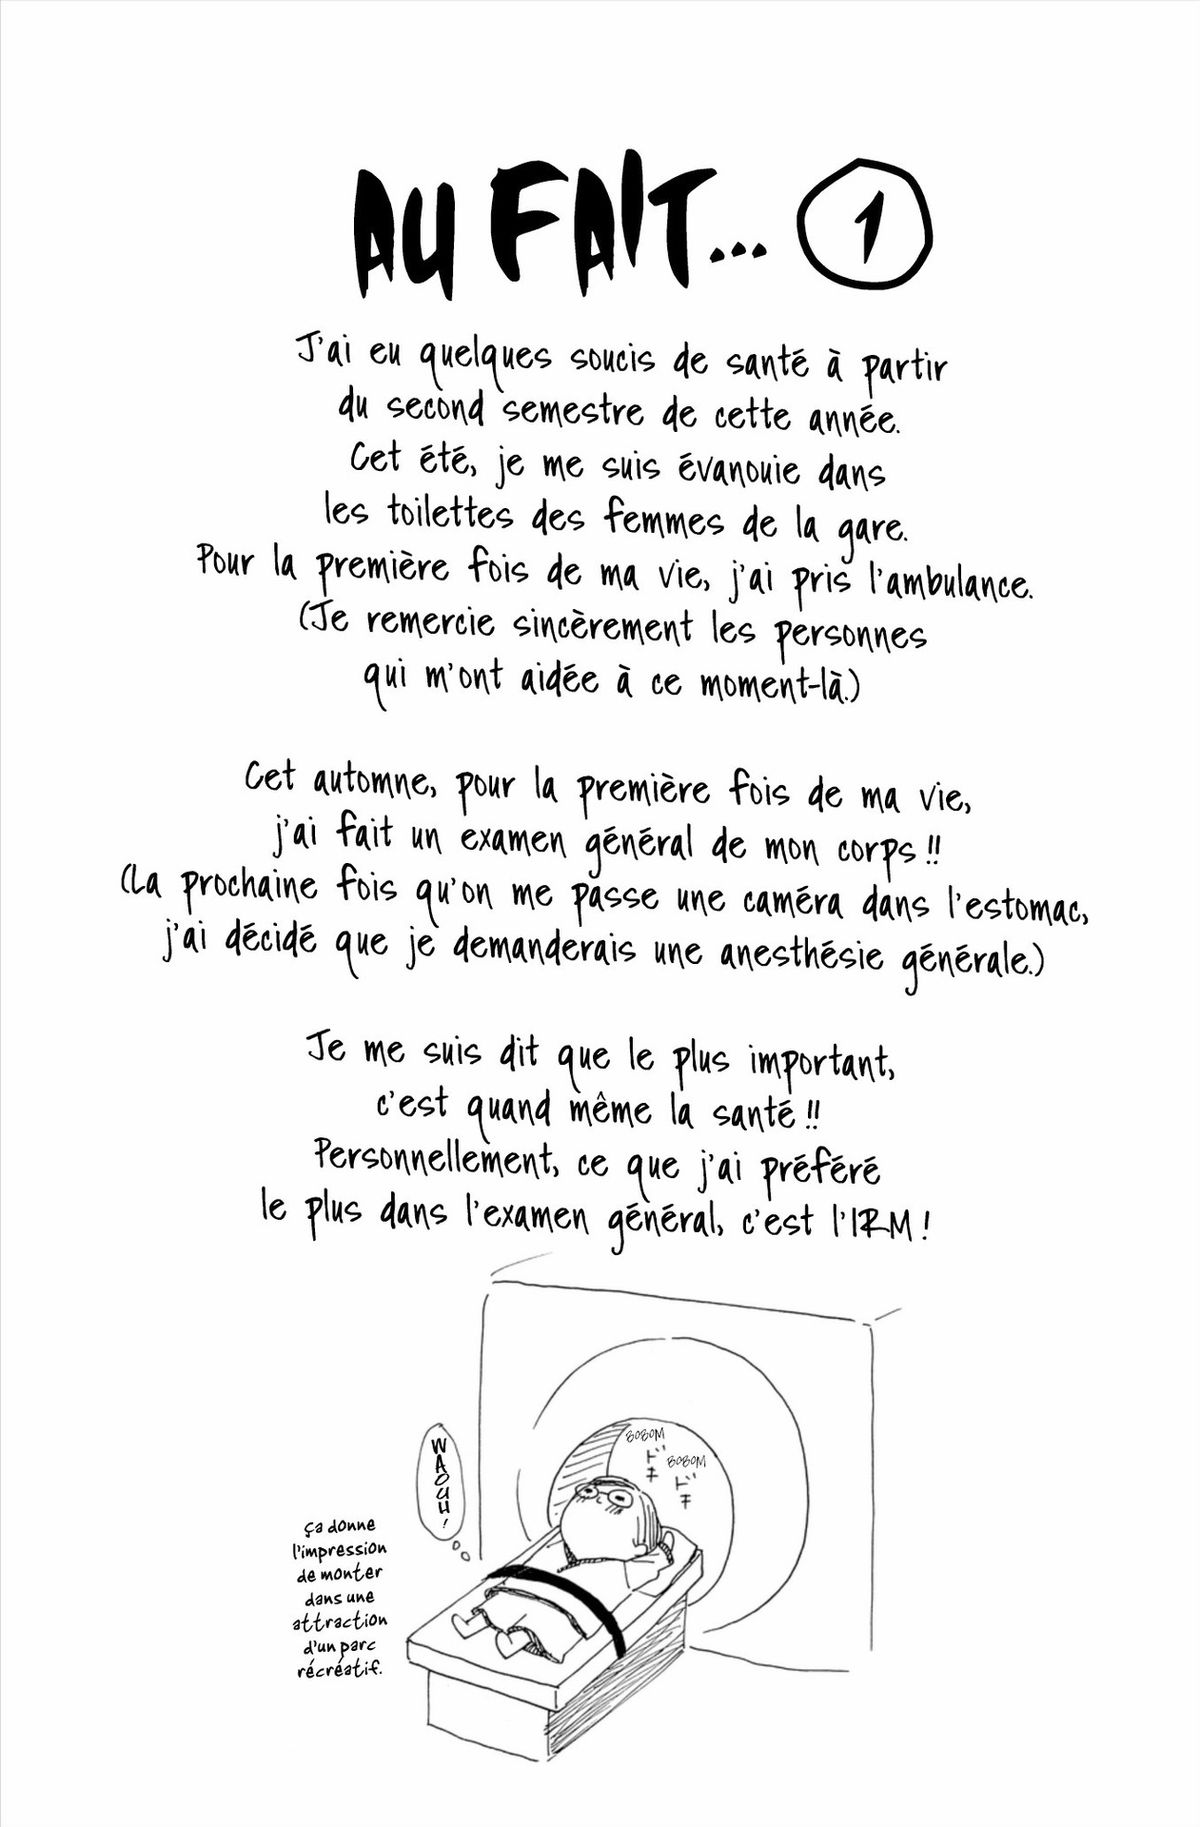 AU FAIT... 1
J'ai eu quelques soucis de santé à partir
du second semestre de cette année.
Cet été, je me suis évanouie dans
les toilettes des femmes de la gare.
Pour la première fois de ma vie, j'ai pris l'ambulance.
(Je remercie sincèrement les personnes
qui m'ont aidée à ce moment-là.)
Cet automne, pour la première fois de ma vie,
j'ai fait un examen général de mon corps !!
(La prochaine fois qu'on me passe une caméra dans l'estomac,
j'ai décidé que je demanderais une anesthésie générale.)
Je me suis dit que le plus important,
c'est quand même la santé !!
Personnellement, ce que j'ai préféré
le plus dans l'examen général, c'est l'IRM !
BOBOM
ドキ
BOBOM
ドキ
WAOUH !
Ça donne
l'impression
de monter
dans une
attraction
d'un parc
récréatif.